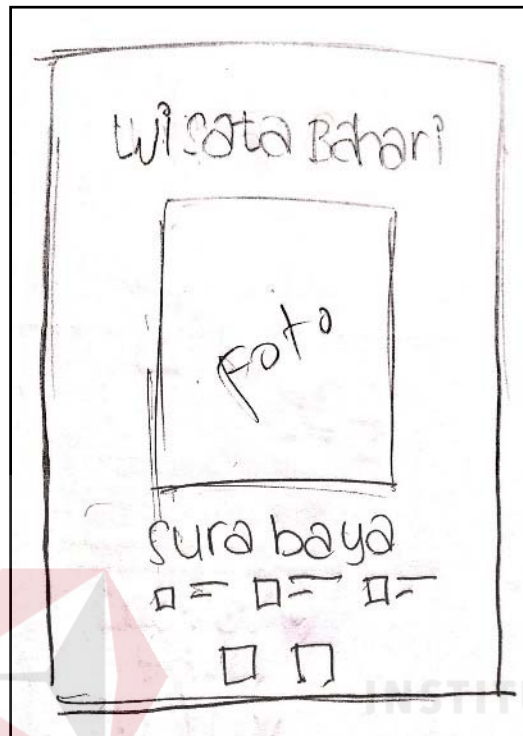 Wisata Bahari
Foto
Surabaya
INSTITU